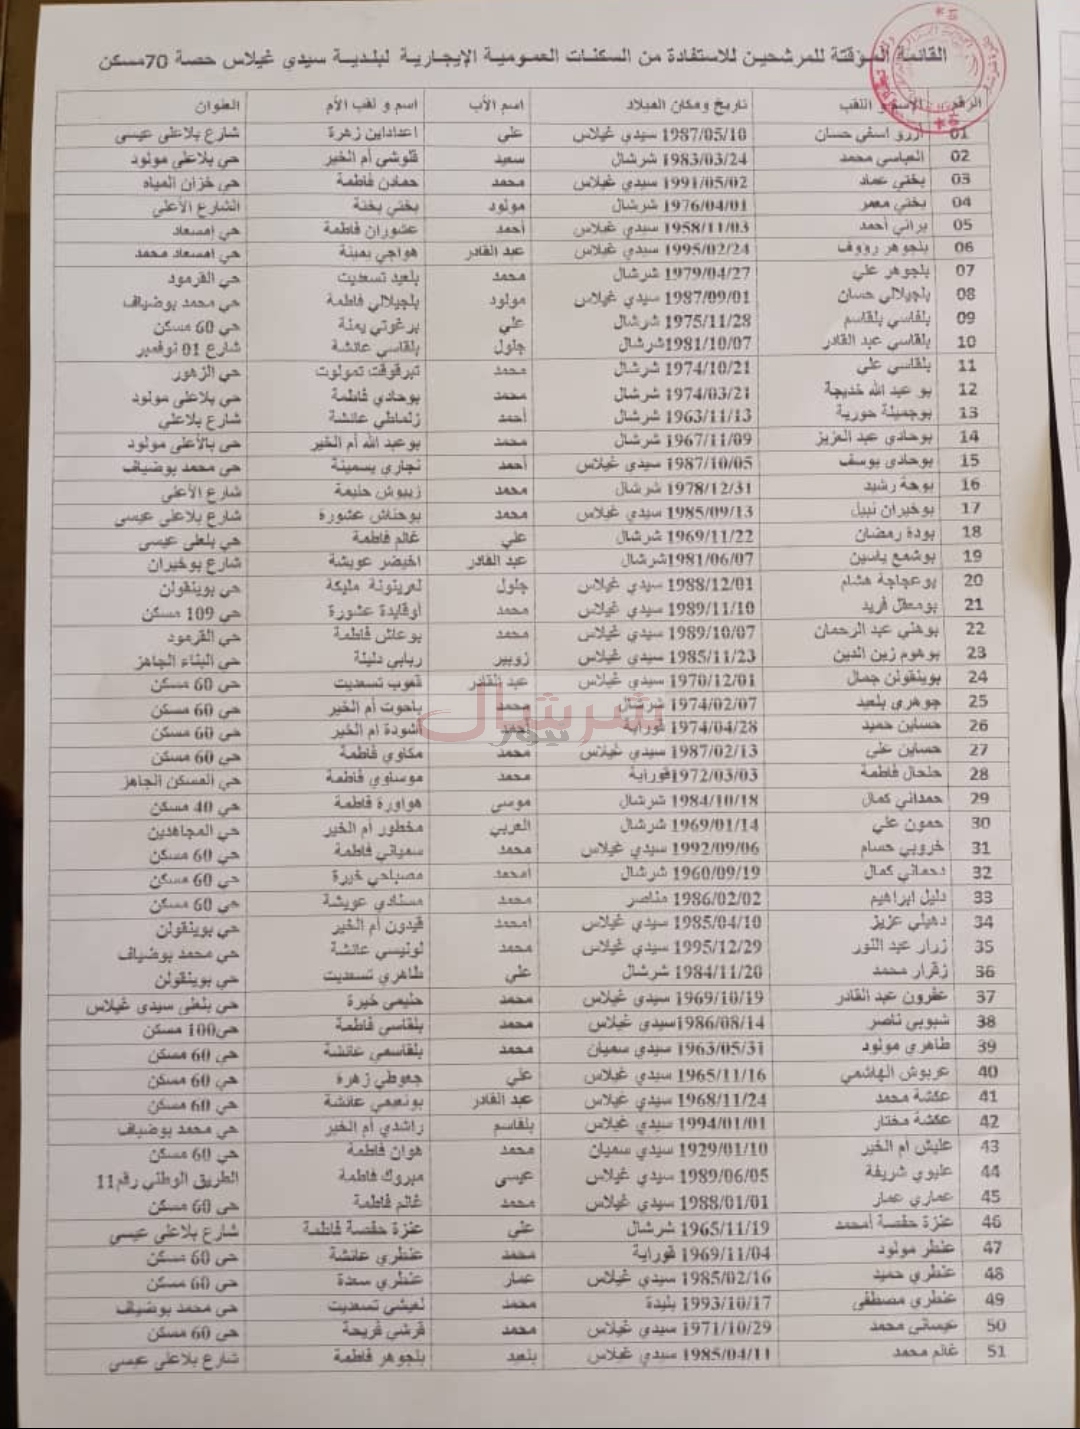 القائمة المؤقتة للمرشحين للاستفادة من السكنات العمومية الإيجارية لبلدية سيدي غيلاس حصة 70مسكن
الرقم الإسم و اللقب تاريخ ومكان الميلاد اسم الأب اسم و لقب الأم العنوان
01 أزرو اسفي حسان 1987/05/10 سيدي غيلاس علي اعدادين زهرة شارع بلاعلى عيسى
02 العباسي محمد 1983/03/24 شرشال سعيد قلوشي أم الخير حي بلاعلى مولود
03 بختي عماد 1991/05/02 سيدي غيلاس محمد حمادن فاطمة حي خزان المياه
04 بختي معمر 1976/04/01 شرشال مولود بختي بختة الشارع الأعلى
05 براني أحمد 1958/11/03 سيدي غيلاس أحمد عشوران فاطمة حي إمسعاد
06 بلجوهر رؤوف 1995/02/24 سيدي غيلاس عبد القادر هواجي يمينة حي إمسعاد محمد
07 بلجوهر علي 1979/04/27 شرشال محمد بلعيد تسعديت حي القرمود
08 بلجيلالي حسان 1987/09/01 سيدي غيلاس مولود بلجيلالي فاطمة حي محمد بوضياف
09 بلقاسي بلقاسم 1975/11/28 شرشال علي برغوتي يمنة حي 60 مسكن
10 بلقاسي عبد القادر 1981/10/07شرشال جلول بلقاسي عائشة شارع 01 نوفمبر
11 بلقاسي علي 1974/10/21 شرشال محمد تبرقوقت تمولوت حي الزهور
12 بو عبد الله خديجة 1974/03/21 شرشال محمد بوحادي فاطمة حي بلاعلى مولود
13 بوجميلة حورية 1963/11/13 شرشال أحمد زلماطي عائشة شارع بلاعلي
14 بوحادي عبد العزيز 1967/11/09 شرشال محمد بوعبد الله أم الخير حي بالأعلى مولود
15 بوحادي يوسف 1987/10/05 سيدي غيلاس أحمد نجاري يسمينة حي محمد بوضياف
16 بوحة رشيد 1978/12/31 شرشال محمد زيبوش حليمة شارع الأعلى
17 بوخيران نبيل 1985/09/13 سيدي غيلاس محمد بوحناش عشورة شارع بلاعلى عيسى
18 بودة رمضان 1969/11/22 شرشال علي غالم فاطمة حي بلعلى عيسى
19 بوشمع ياسين 1981/06/07شرشال عبد القادر اخيضر عويشة شارع بوخيران
20 بوعجاجة هشام 1988/12/01 سيدي غيلاس جلول لعرينونة مليكة حي بوينقولن
21 بومعطل فريد 1989/11/10 سيدي غيلاس محمد أوقايدة عشورة حي 109 مسكن
22 بوهني عبد الرحمان 1989/10/07 سيدي غيلاس محمد بوعاش فاطمة حي القرمود
23 بوهوم زين الدين 1985/11/23 سيدي غيلاس زوبير ربابي دليلة حي البناء الجاهز
24 بوينقولن جمال 1970/12/01 سيدي غيلاس عبد القادر قعوب تسعديت حي 60 مسكن
25 جوهري بلعيد 1974/02/07 شرشال محمد ياحوت أم الخير حي 60 مسكن
26 حساين حميد 1974/04/28 قوراية أحمد أشودة ام الخير حي 60 مسكن
27 حساين علي 1987/02/13 سيدي غيلاس محمد مكاوي فاطمة حي 60 مسكن
28 حلحال فاطمة 1972/03/03قوراية محمد موساوي فاطمة حي المسكن الجاهز
29 حمداني كمال 1984/10/18 شرشال موسى هواورة فاطمة حي 40 مسكن
30 حمون علي 1969/01/14 شرشال العربي مخطور ام الخير حي المجاهدين
31 خروبي حسام 1992/09/06 سيدي غيلاس محمد سمياني فاطمة حي 60 مسكن
32 دحماني كمال 1960/09/19 شرشال امحمد مصباحي خيرة حي 60 مسكن
33 دليل ابراهيم 1986/02/02 مناصر محمد مسنادي عويشة حي 60 مسكن
34 دهيلي عزيز 1985/04/10 سيدي غيلاس امحمد قيدون أم الخير حي بوينقولن
35 زرار عبد النور 1995/12/29 سيدي غيلاس محمد لونيسي عائشة حي محمد بوضياف
36 زقرار محمد 1984/11/20 شرشال علي طاهري تسعديت حي بوينقولن
37 عقرون عبد القادر 1969/10/19 سيدي غيلاس محمد حليمي خيرة حي بلعلى سيدي غيلاس
38 شبوبي ناصر 1986/08/14سيدي غيلاس محمد بلقاسي فاطمة حي100 مسكن
39 طاهري مولود 1963/05/31 سيدي سميان محمد بلقاسمي عائشة حي 60 مسكن
40 عربوش الهاشمي 1965/11/16 سيدي غيلاس علي جعوطي زهرة حي 60 مسكن
41 عكشة محمد 1968/11/24 سيدي غيلاس عبد القادر بونعيمي عائشة حي 60 مسكن
42 عكشة مختار 1994/01/01 سيدي غيلاس بلقاسم راشدي أم الخير حي محمد بوضياف
43 عليش ام الخير 1929/01/10 سيدي سميان محمد هوان فاطمة حي 60 مسكن
44 عليوي شريفة 1989/06/05 سيدي غيلاس عيسى مبروك فاطمة الطريق الوطني رقم11
45 عماري عمار 1988/01/01 سيدي غيلاس محمد غالم فاطمة حي 60 مسكن
46 عنزة حفصة أمحمد 1965/11/19 شرشال علي عنزة حفصة فاطمة شارع بلاعلى عيسى
47 عنطر مولود 1969/11/04 قوراية محمد عنطري عائشة حي 60 مسكن
48 عنطري حميد 1985/02/16 سيدي غيلاس عمار عنطري سعدة حي 60 مسكن
49 عنطري مصطفى 1993/10/17 بليدة محمد لعيشي تسعديت حي محمد بوضياف
50 عيساني محمد 1971/10/29 سيدي غيلاس محمد قرشي فريحة حي 60 مسكن
51 غالم محمد 1985/04/11 سيدي غيلاس بلعيد بلجوهر فاطمة شارع بلاعلى عيسى
شرشال نيوز